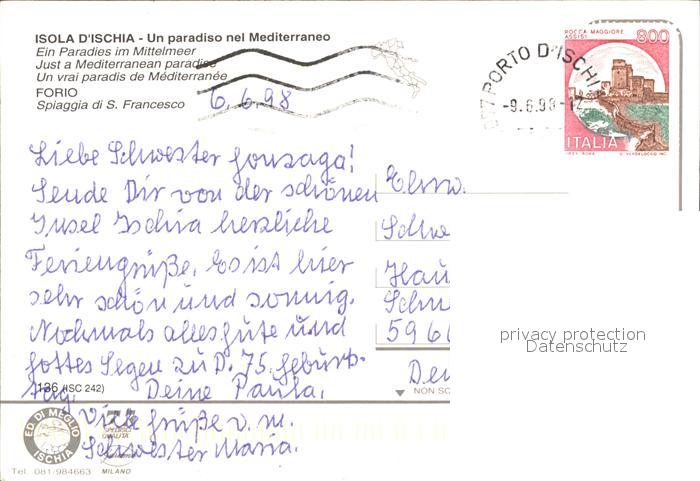 ISOLA D'ISCHIA - Un paradiso nel Mediterraneo
Ein Paradies im Mittelmeer
Just a Mediterranean paradise
Un vrai paradis de Méditerranée
FORIO
Spiaggia di S. Francesco
6.6.98
PORTO D'ISCHIA
-9.6.98-12
ROCCA MAGGIORE
ASSISI
800
ITALIA
Liebe Schwester Gonzaga!
Sende Dir von der schönen
Insel Ischia herzliche
Feriengrüße. Es ist hier
sehr schön und sonnig.
Nochmals alles Gute und
Gottes Segen zu D. 75. Geburts-
tag. Deine Paula.
Viele Grüße v. m.
Schwester Maria.
Ehrw.
Schwe
Hau
Schu
5966
Deu
136 (ISC 242)
NON SC
ED. DI MEGLIO
ISCHIA
Tel. 081/984663
MILANO
privacy protection
Datenschutz